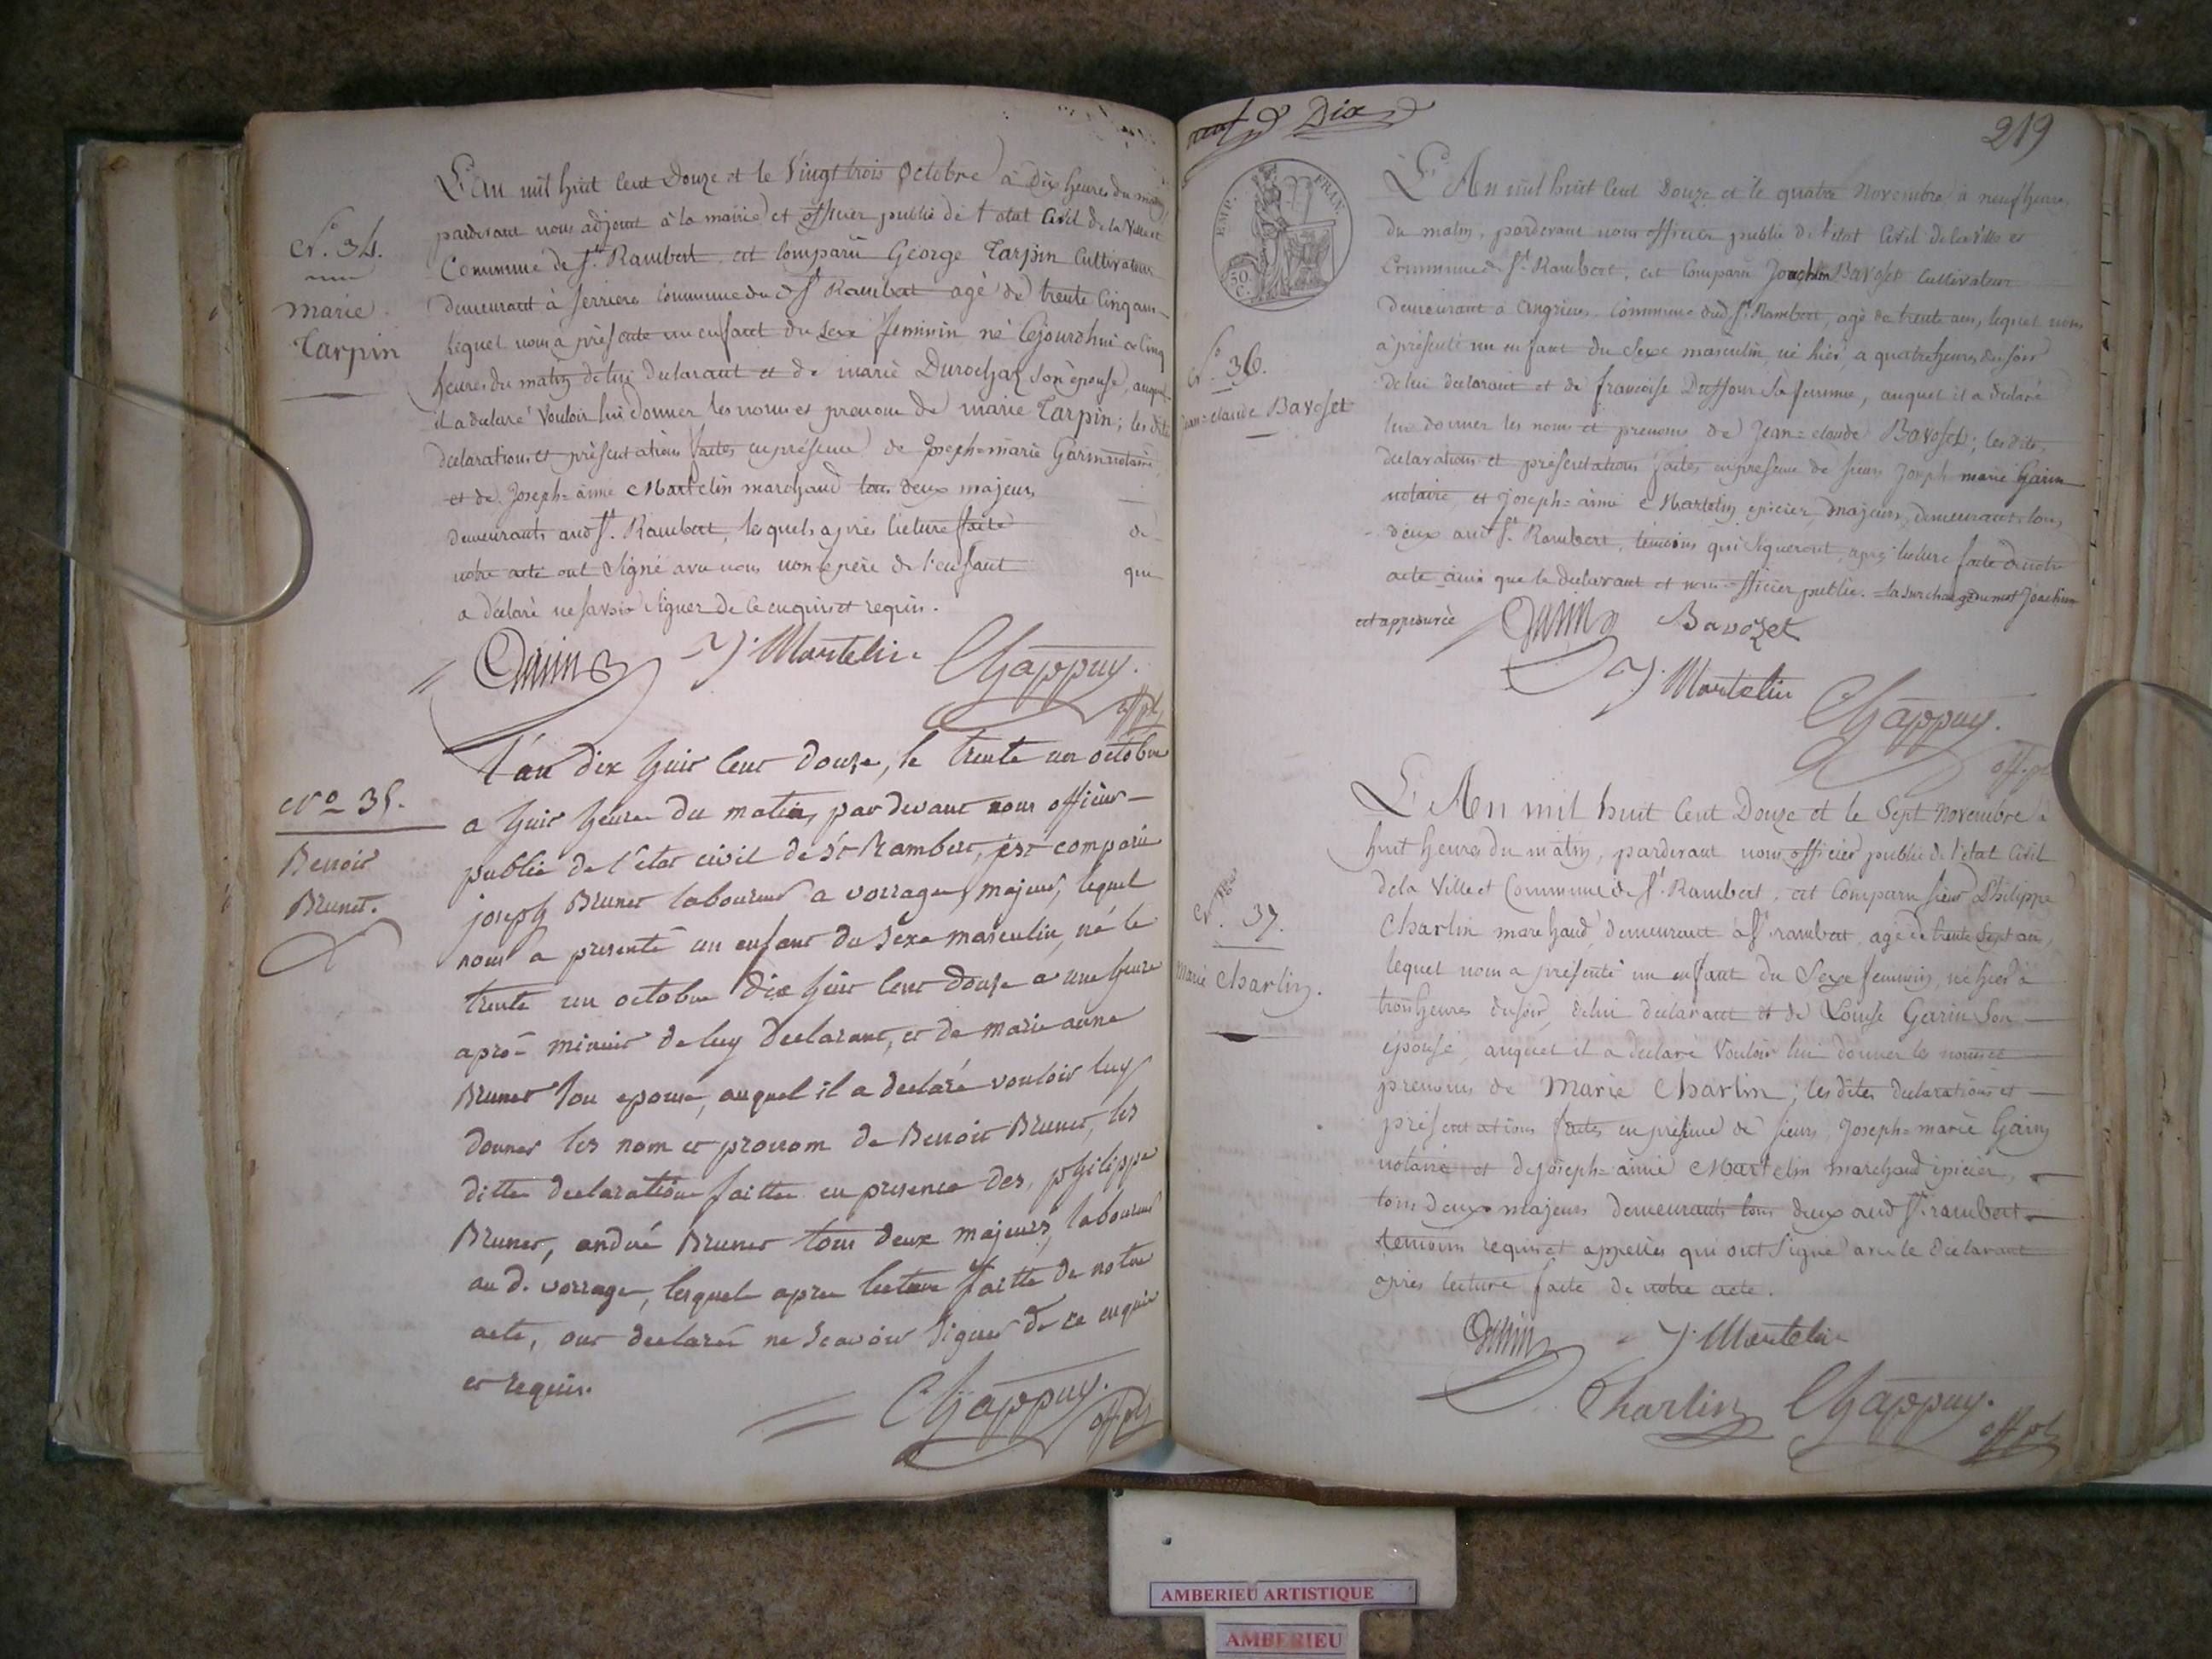 N°. 34.
marie
Tarpin
L'an mil huit Cent Douze et le Vingt trois Octobre à Dix heures du matin
pardevant nous adjoint à la mairie et officier public de l'etat Civil de la Ville et
Commune de St. Rambert, est Comparu George Tarpin Cultivateur
demeurant à Serriere Commune du d St Rambert agé de trente Cinq ans
lequel nous à présenté un enfant du sexe feminin né Cejourdhui a Cinq
heures du matin de lui declarant et de marie Durochaz son épouse, auquel
il a declaré Vouloir lui donner les noms et prenom de marie Tarpin; les dites
declarations et présentations faites en présence de joseph=marie Garin notaire
et de Joseph=aimé Martelin marchand tous deux majeurs
demeurants aud St. Rambert, lesquels après lecture faite de
notre acte ont Signé avec nous non le père de l'enfant que
a déclaré ne savoir signer de ce enquis et requis.
Garin J. Martelin Chappuy.
off pb
N° 35.
Benoit
Brunet.
l'an dix huit Cent douze, le trente un octobre
a huit heures du matin, par devant nous officier
public de l'etat civil de St Rambert, est comparu
joseph Brunet laboureur a vorrage, majeur, lequel
nous a presenté un enfant du Sexe masculin, né le
trente un octobre dix huit Cent douze a une heure
apré minuit de luy declarant, et de marie anne
Brunet Son epouse, auquel il a declaré vouloir luy
donner les nom et prenom de Benoit Brunet, les
dittes declaration faittes en presence des, philippe
Brunet, andré Brunet tous deux majeurs, laboureurs
au d. vorrage, lesquels apres lecture faitte de notre
acte, ont declaré ne Scavoir Signer de ce enquis
et requis.
Chappuy.
off pb
neuf Dix
219
EMP. FRAN.
50 C.
N°. 36.
Jean=claude Bavoset
L'An mil huit Cent Douze et le quatre Novembre à neuf heures
du matin, pardevant nous officier public de l'etat Civil de la Ville et
Commune de St Rambert, est Comparu Joachim Bavoset Cultivateur
demeurant a angrieres, Commune dud St. Rambert, agé de trente ans, lequel nous
à présenté un enfant du sexe masculin né hier, a quatre heures du soir
de lui declarant et de francoise Duffour Sa femme, auquel il a declaré
lui donner les noms et prenoms de Jean=claude Bavoset; les dites
declarations et présentations faites en presence de sieurs Joseph marie Garin
notaire, et Joseph=aimé Martelin epicier, majeurs, demeurants tous
deux aud St. Rambert, temoins qui Signeront, après lecture faite de notre
acte ainsi que le declarant et nous officier public. = la surcharge du mot Joachim
est approuvée Garin Bavozet
J. Martelin Chappuy.
off. pb
N°. 37.
Marie Charlin.
L'An mil huit Cent Douze et le Sept Novembre à
huit heures du matin, pardevant nous officier public de l'etat Civil
de la Ville et Commune de St. Rambert, est Comparu sieur Philippe
Charlin marchand, demeurant à St rambert, agé de trente Sept ans,
lequel nous a présenté un enfant du Sexe feminin, né hier à
trois heures du soir, de lui declarant et de Louise Garin Son
épouse, auquel il a declaré Vouloir lui donner les noms et
prenoms de Marie Charlin; les dites declarations et
présentations faites en présence de sieurs, Joseph=marie Garin
notaire et de joseph=aimé Martelin marchand épicier,
tous deux majeurs demeurants tous deux aud St. rambert
temoins requis et appellés qui ont Signé avec le declarant
après lecture faite de notre acte.
Garin J. Martelin
Charlin Chappuy.
off pb
AMBERIEU ARTISTIQUE
AMBERIEU